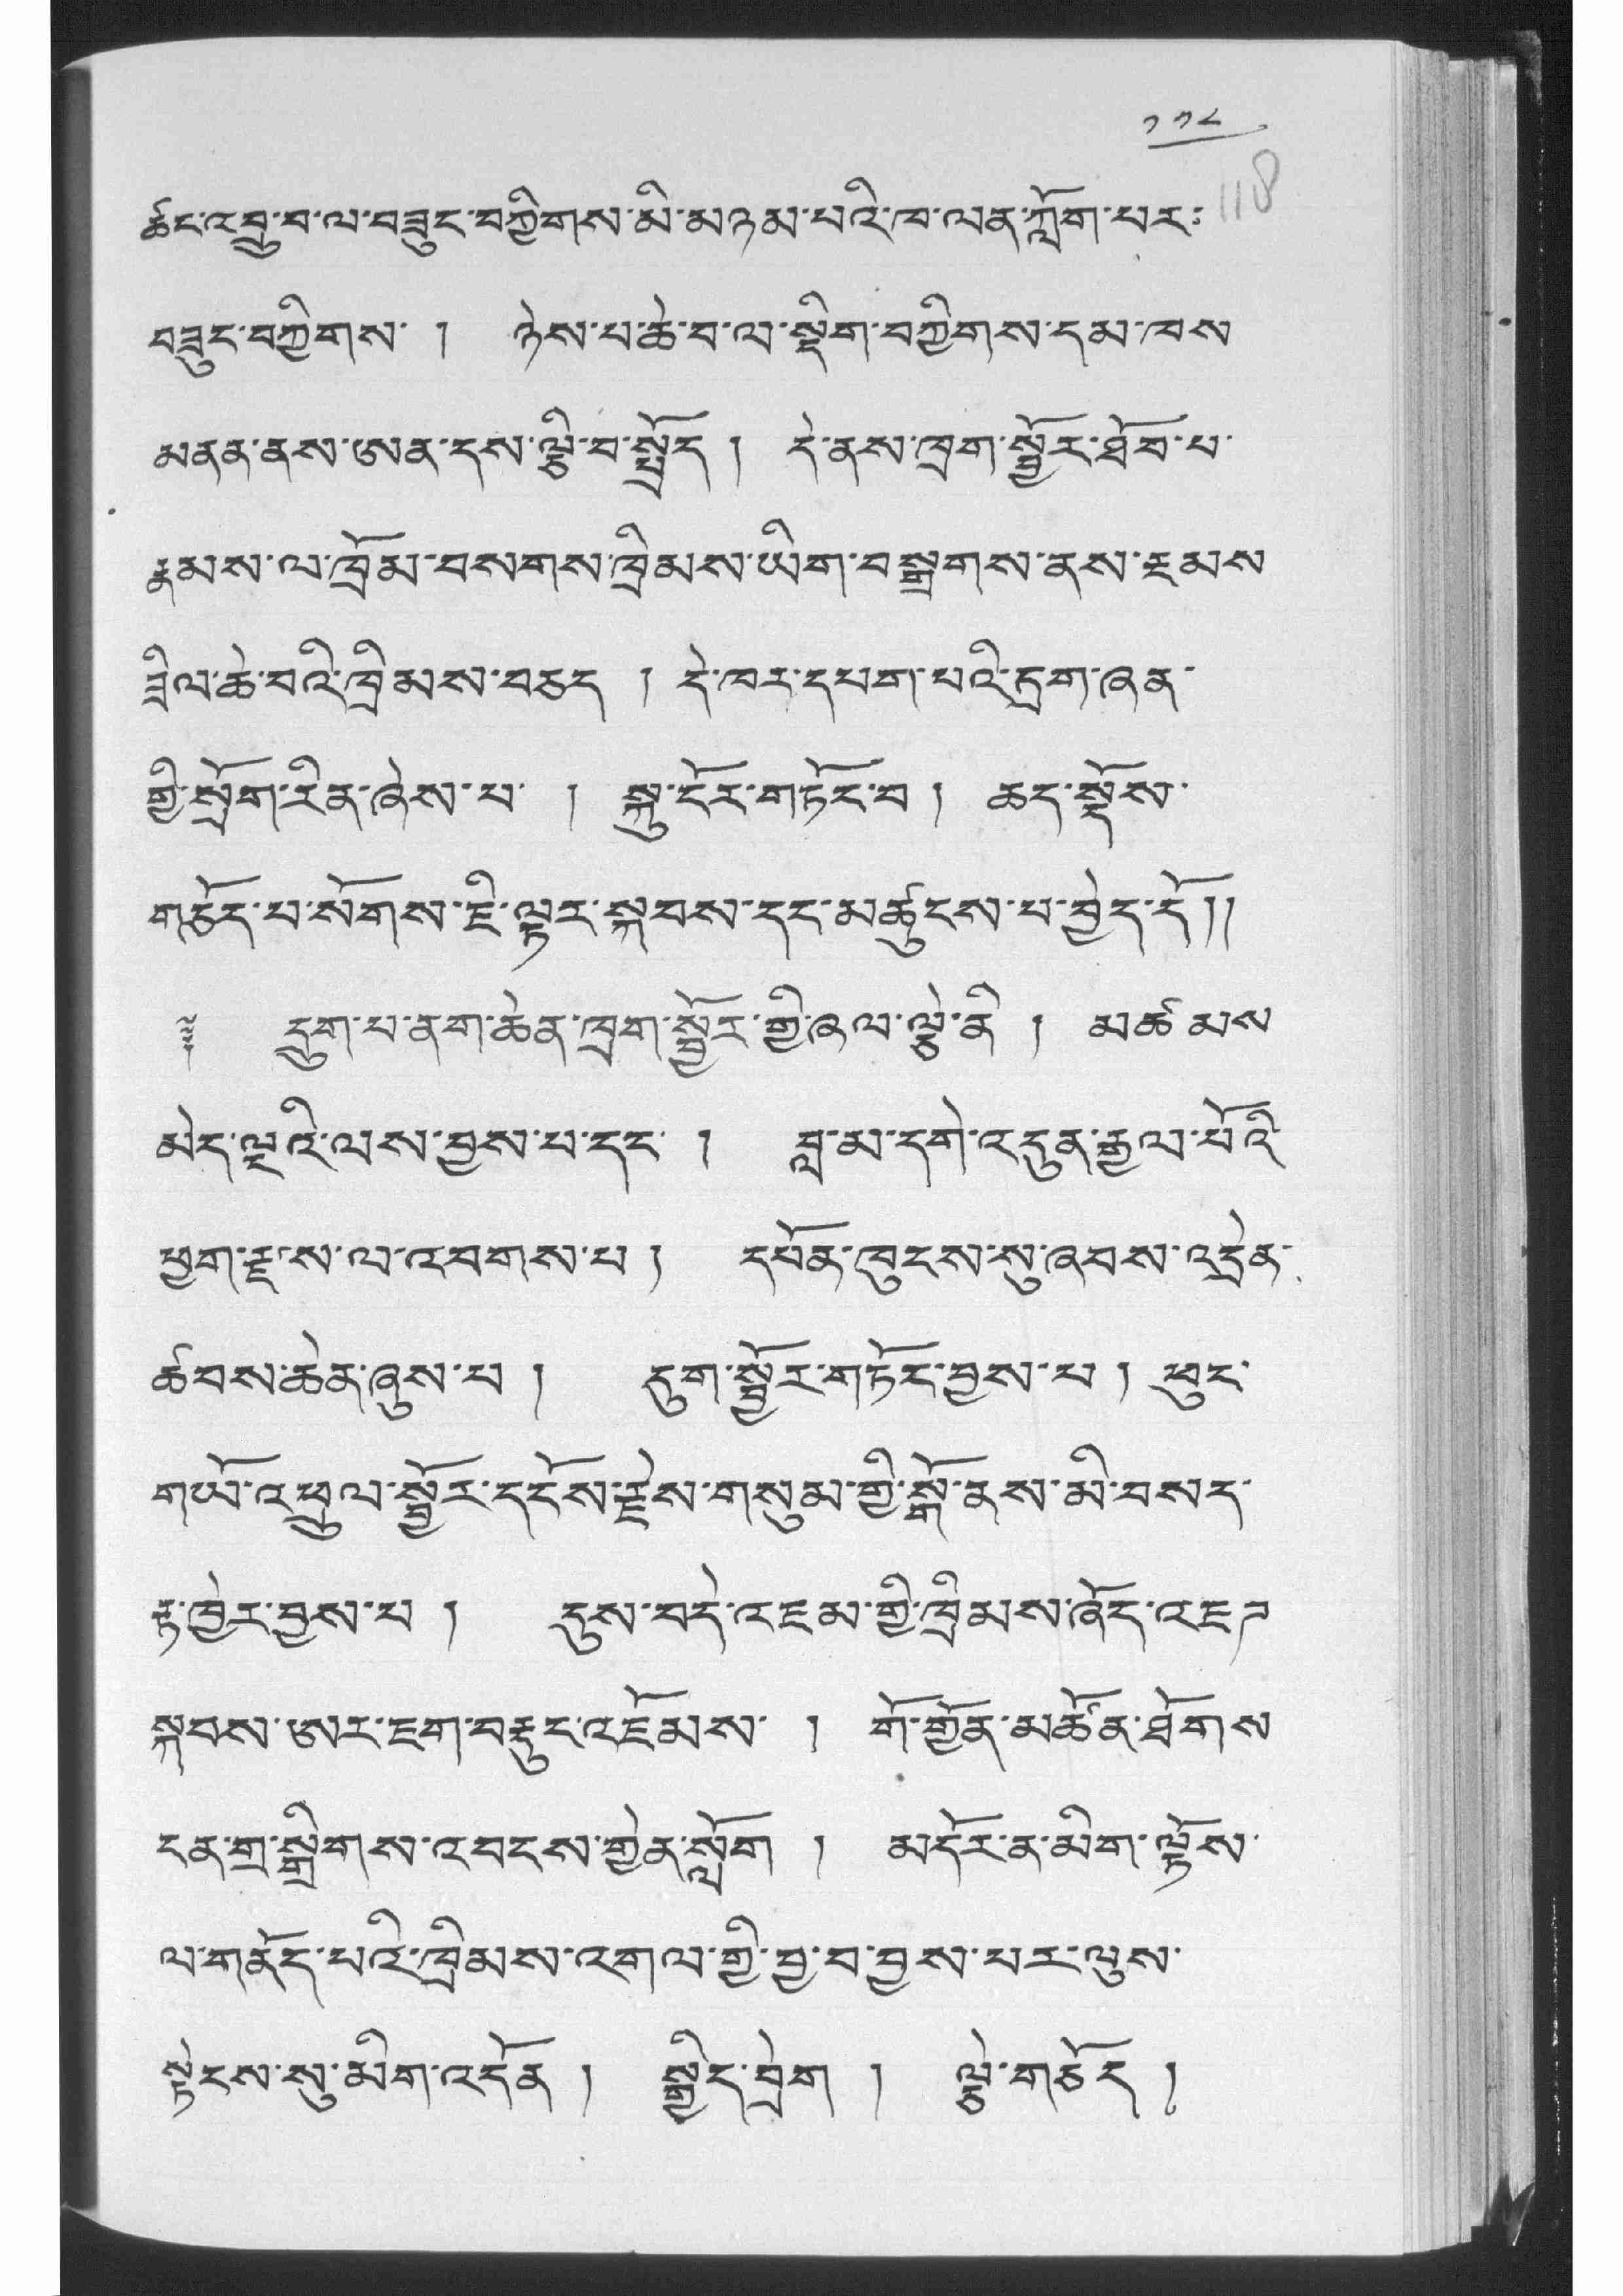 ༡༡༨
118
ཚང་འབྲུ་བ་ལ་བཟུང་བཀྱིགས་མི་མཉམ་པའི་ཁ་ལན་ཀློག་པར་
བཟུང་བཀྱིགས་ །  ཉེས་པ་ཆེ་བ་ལ་སྡིག་བཀྱིགས་དམ་ཁས
མནན་ནས་ཨན་དས་ལྕི་བ་སྤྲོད །  དེ་ནས་ཁྲག་སྦྱོར་ཐོབ་པ་
རྣམས་ལ་ཁྲོམ་བསགས་ཁྲིམས་ཡིག་བསྒྲགས་ནས་རྔམས
ཟིལ་ཆེ་བའི་ཁྲིམས་བཅད །  དེ་ཁར་དཔག་པའི་དྲག་ཞན་
གྱི་སྲོག་རིན་ཞེས་པ་ །  སྐུ་ངོར་གཏོང་བ །  ཆད་སྡོས་
གཅོད་པ་སོགས་ཇི་ལྟར་སྐབས་དང་མཚུངས་པ་བྱེད་དོ།།
༈  དྲུག་པ་ནག་ཆེན་ཁྲག་སྦྱོར་གྱི་ཞལ་ལྕེ་ནི །  མཚམས
མེད་ལྔའི་ལས་བྱས་པ་དང་ །  བླ་མ་དགེ་འདུན་རྒྱལ་པོའི
ཕྱག་རྫས་ལ་འབགས་པ །  དཔོན་ཁུངས་སུ་ཞབས་འདྲེན་
ཚབས་ཆེན་ཞུས་པ །  དུག་སྦྱོར་གཏོང་བྱས་པ །  ཕུང་
གཡོ་འཕྲུལ་སྦྱོར་དངོས་རྗེས་གསུམ་གྱི་སྒོ་ནས་མི་བསད་
རྟ་ཁྱེར་བྱས་པ །  དུས་བདེ་འཇམ་གྱི་ཁྲིམས་ཞོད་འཇད
སྐབས་ཨར་ཇག་བརྡུང་འཇོམས་ །  གོ་གྱོན་མཚོན་ཐོགས
ངན་གྲ་སྒྲིགས་འབངས་གྱེན་སློག །  མདོར་ན་མིག་ལྟོས་
ལ་གནོད་པའི་ཁྲིམས་འགལ་གྱི་བྱ་བ་བྱས་པར་ལུས་
སྟེངས་སུ་མིག་འདོན །  སྒྱིད་བྲེག །  ལྕེ་གཅོད །